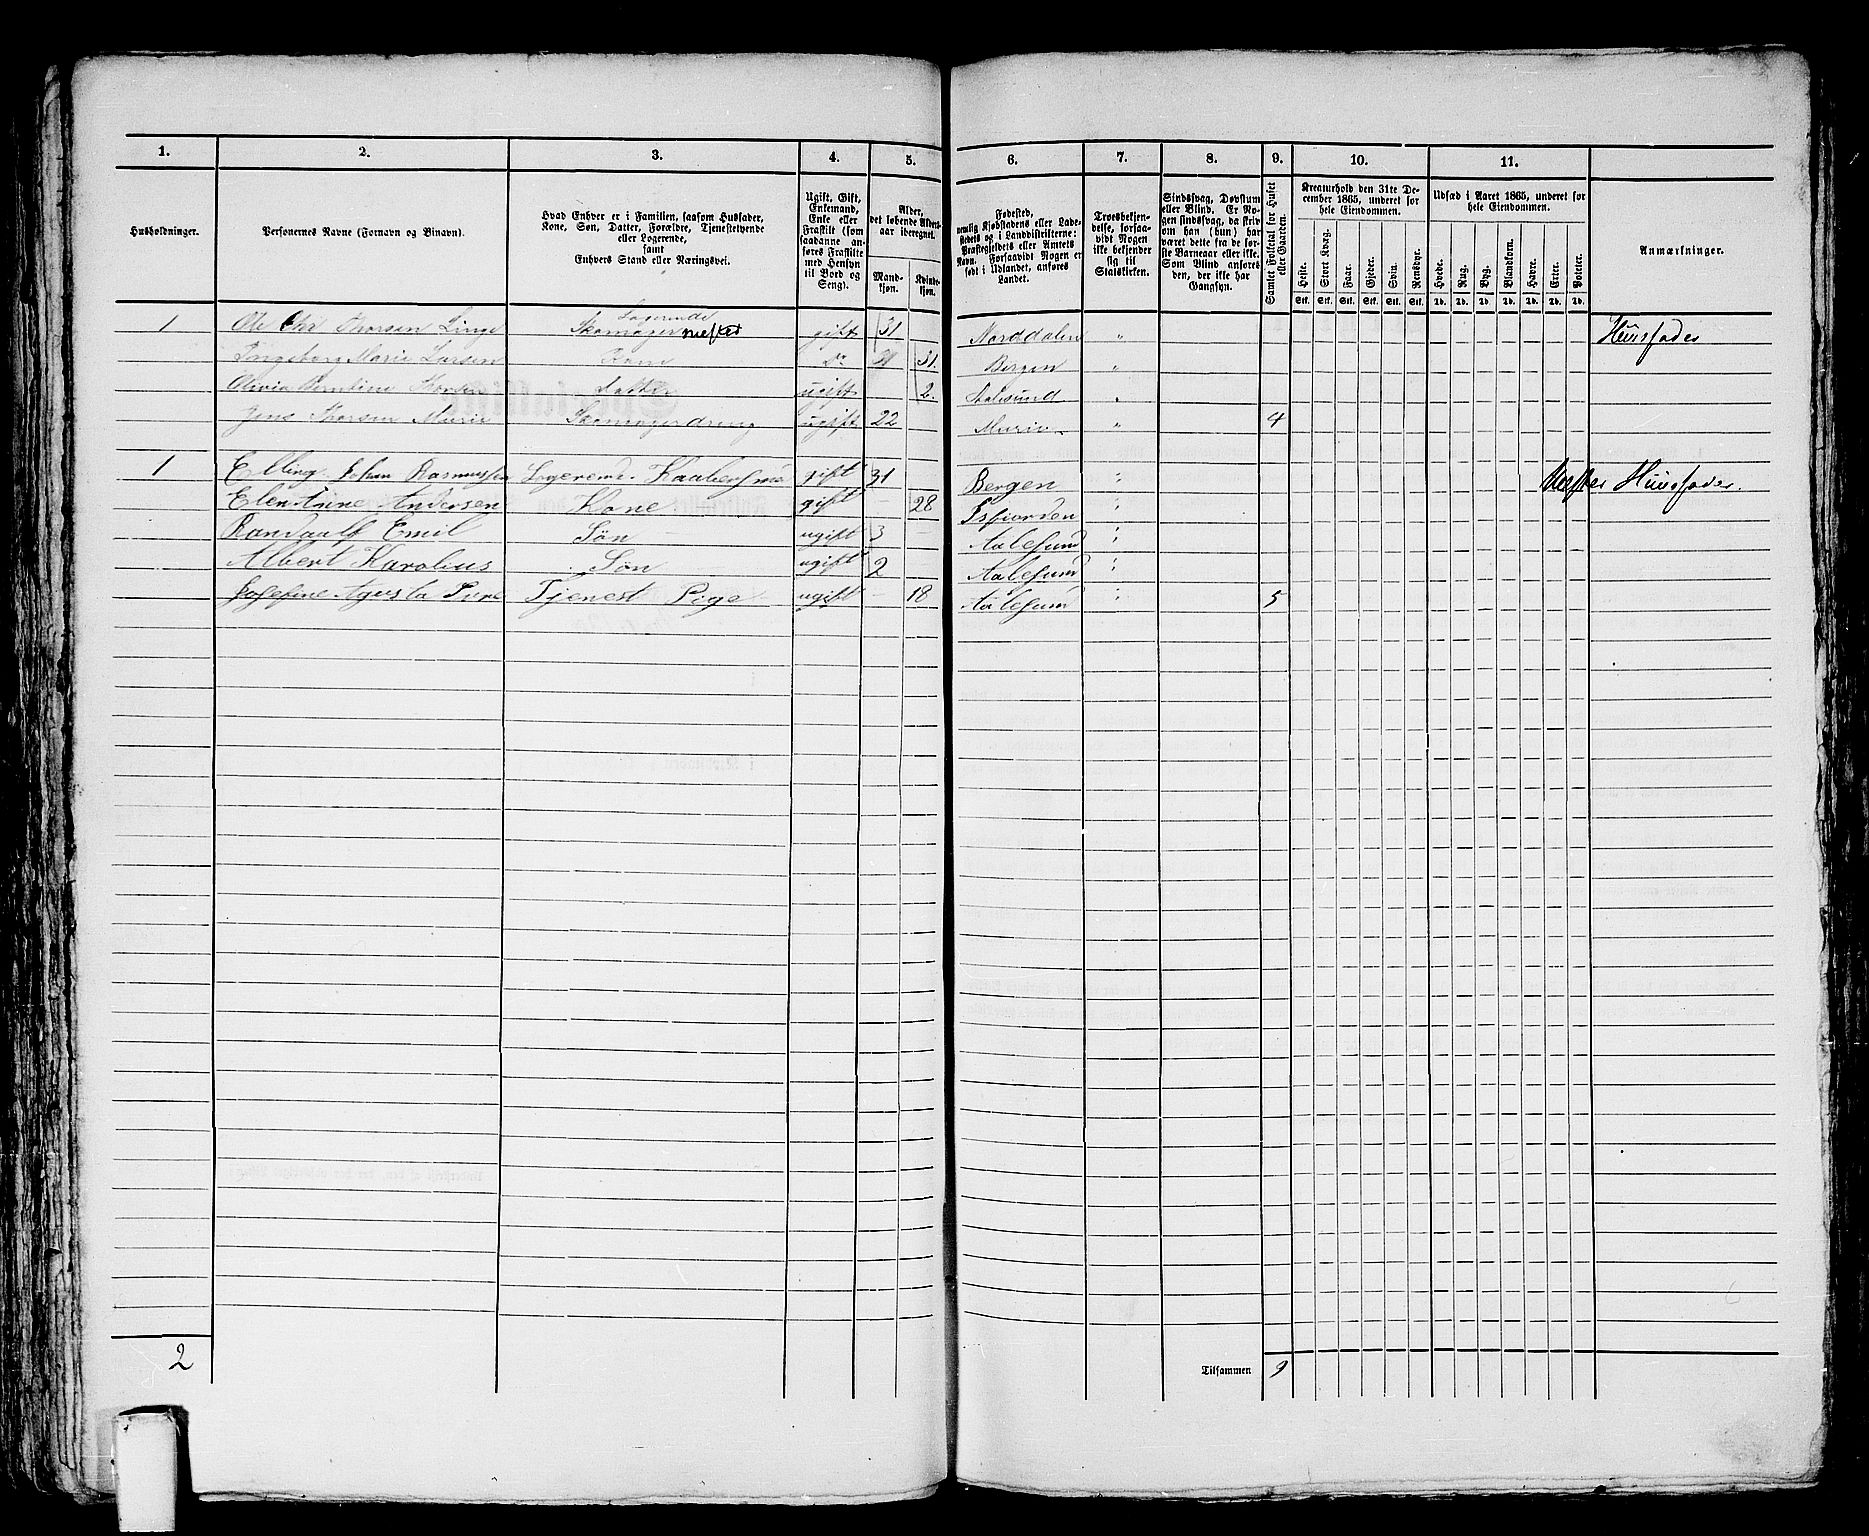 1. 2. 3. 4. 5. 6. 7. 8. 9. 10. 11.
Husholdninger.
Personernes Navne (Fornavn og Binavn).
Hvad Enhver er i Familien, saasom Husfader,
Kone, Søn, Datter, Forældre, Tjenestetyende
eller Logerende,
samt
Enhvers Stand eller Næringsvei.
Ugift, Gift,
Enkemand,
Enke eller
Fraskilt (som
saadanne an-
føres Fraskilte
med Hensyn
til Bord og
Seng).
Alder,
det løbende Alders-
aar iberegnet.
Mand-
kjøn.
Kvinde-
kjøn.
Fødested,
nemlig Kjøbstadens eller Lade-
stedets og i Landdistrikterne:
Præstegjeldets eller Amtets
Navn. Forsaavidt Nogen er
født i Udlandet, anføres
Landet.
Troesbekjen-
delse, forsaa-
vidt Nogen
ikke bekjender
sig til
Statskirken.
Sindssvag, Døvstum
eller Blind. Er No-
gen sindssvag, da skriv
om han (hun) har
været dette fra de før-
ste Barneaar eller ikke.
Som Blind anføres
den, der ikke har
Gangsyn.
Samlet Folketal for Huset
eller Gaarden.
Kreaturhold den 31te De-
cember 1865, underet for
hele Eiendommen.
Heste. Stort Kvæg. Faar. Gjeder. Svin. Rensdyr.
Stk. Stk. Stk. Stk. Stk. Stk.
Udsæd i Aaret 1865, underet for
hele Eiendommen.
Hvede. Rug. Byg. Blandkorn. Havre. Erter. Poteter.
Td. Td. Td. Td. Td. Td. Td.
Anmærkninger.
1 Ole Chr Thorsen Linge Logerende Skomagermester gift 31 Norddalen " Huusfader
Ingeborg Marie Larsen Kone do 31. Bergen "
Olivia Berntine Thorsen Datter ugift 2. Aalesund "
Jens Thorsen Murie Skomagerdreng ugift 22 Murie " 4
1 Elling Johan Rasmussen Logerend. gift 31 Bergen " Huusfader.
Elen Trine Andersen Kone gift 28 Isfjorden "
Randaulf Emil Søn ugift 3 Aalesund "
Albert Karolius Søn ugift 2 Aalesund "
Josefine Agusta Tjenest Pige ugift 18 Aalesund " 5
2 Tilsammen 9